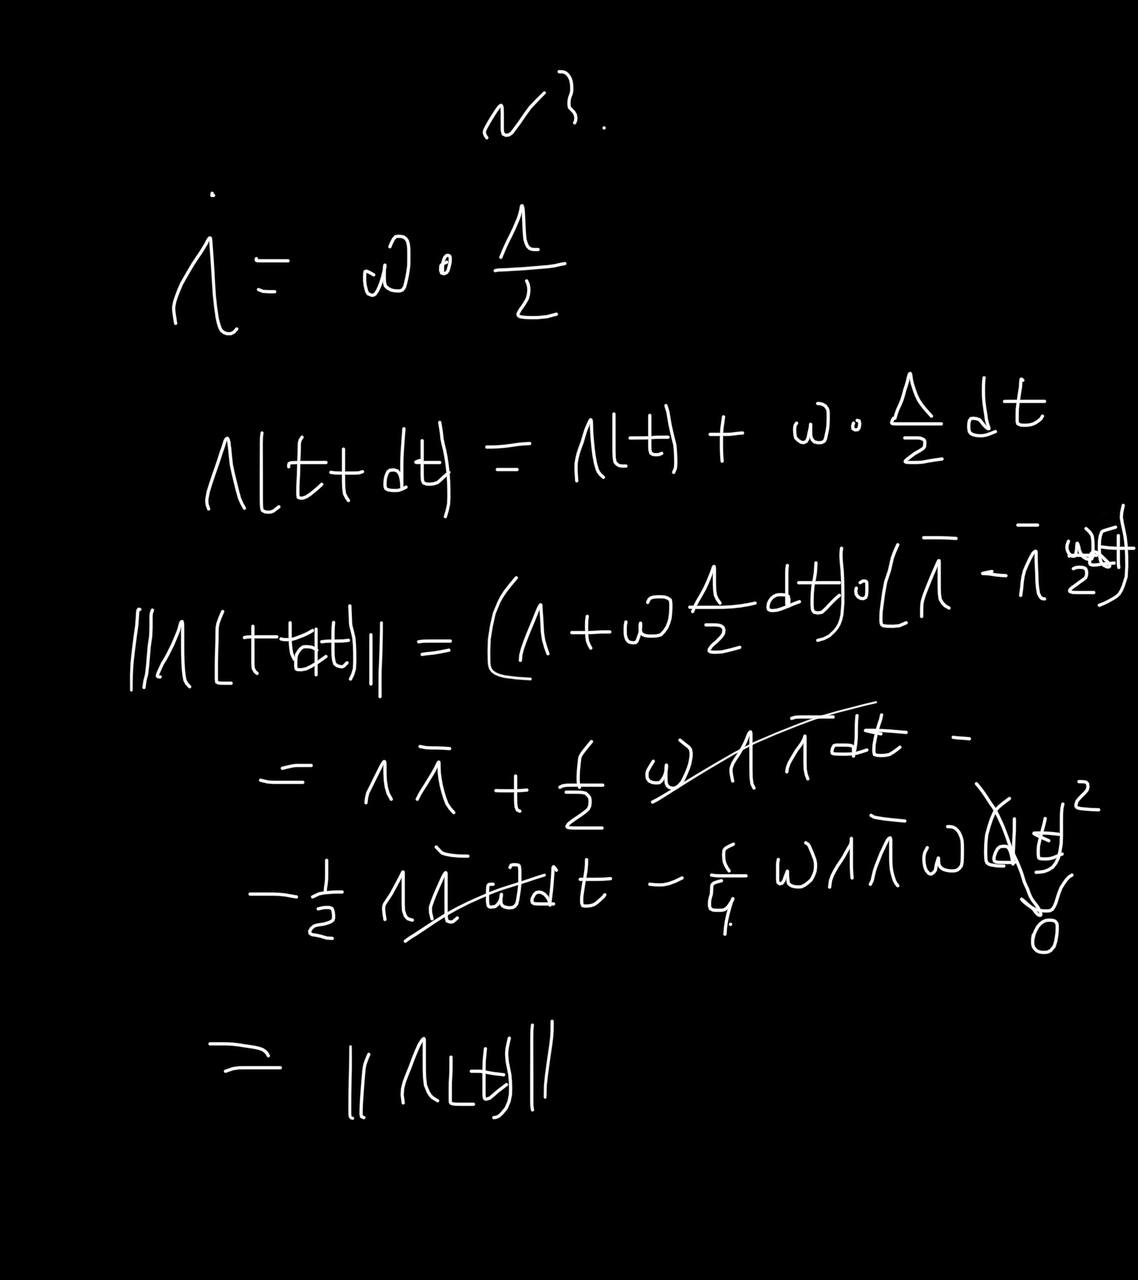 N3.
Λ̇ = ω ∘ Λ/2
Λ(t+dt) = Λ(t) + ω ∘ Λ/2 dt
||Λ(t+dt)|| = (Λ + ω Λ/2 dt) ∘ (Λ̄ - Λ̄ ω/2 dt)
= Λ Λ̄ + 1/2 ω Λ Λ̄ dt -
- 1/2 Λ Λ̄ ω dt - 1/4 ω Λ Λ̄ ω (dt)²
0
= ||Λ(t)||